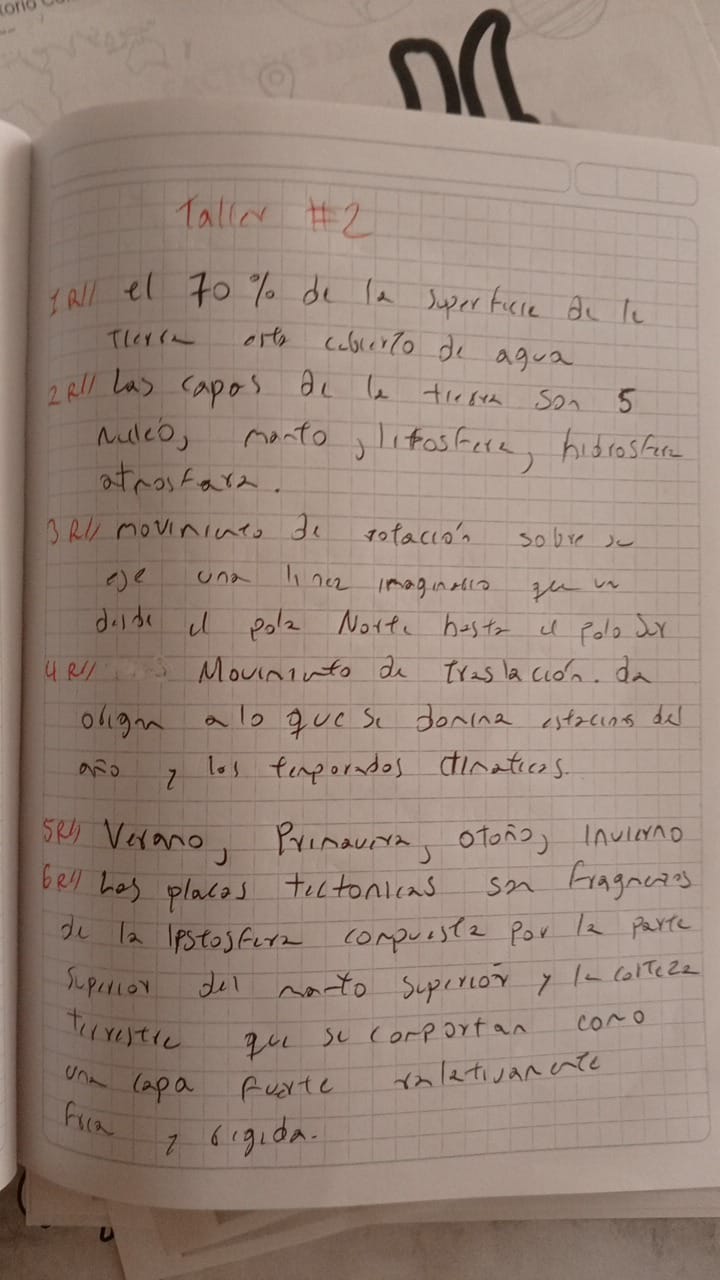 Taller #2
1R// el 70% de la superficie de la
Tierra esta cubierto de agua
2R// Las capas de la tierra son 5
Nuleo, manto, litosfera, hidrosfera
atmosfara.
3R// movimiento de rotación sobre su
eje una linea imaginario que va
desde el polo Norte hasta el polo Sur
4R// Movimiento de traslación. da
origen a lo que se domina estacions del
año y los temporados climaticos.
5R// Verano, Primavera, otoño, Invierno
6R// Las placas tectonicas son fragmentos
de la lpstosfera compuesta por la parte
superior del manto superior y la corteza
terrestre que se comportan como
una capa fuerte relativamente
fria y rigida.